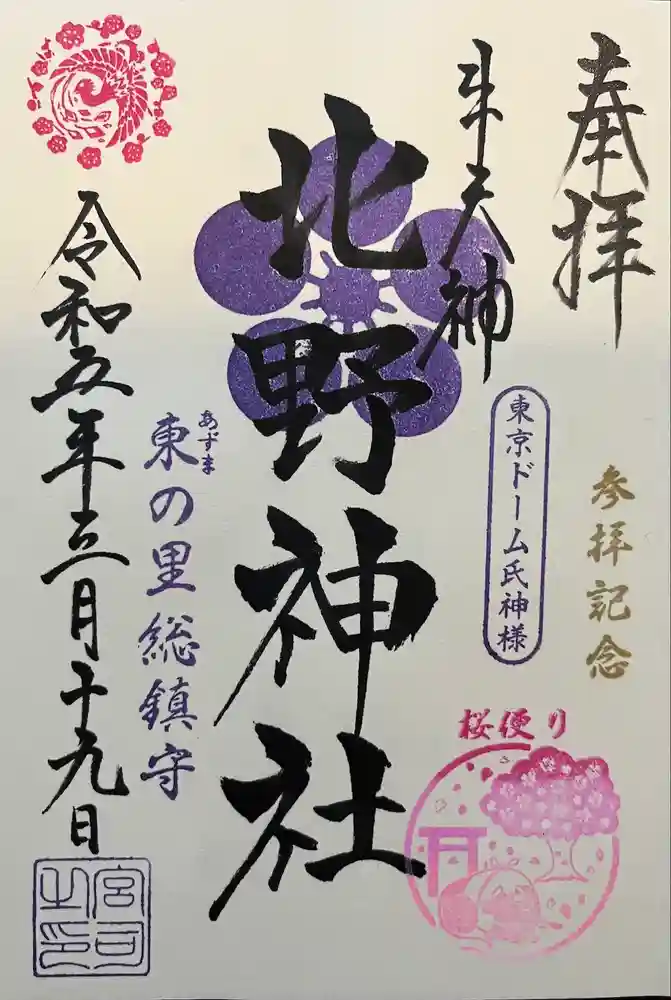 奉拝
参拝記念
牛天神
東京ドーム氏神様
桜便り
北野神社
あずま
東の里総鎮守
令和五年三月十九日
宮司之印